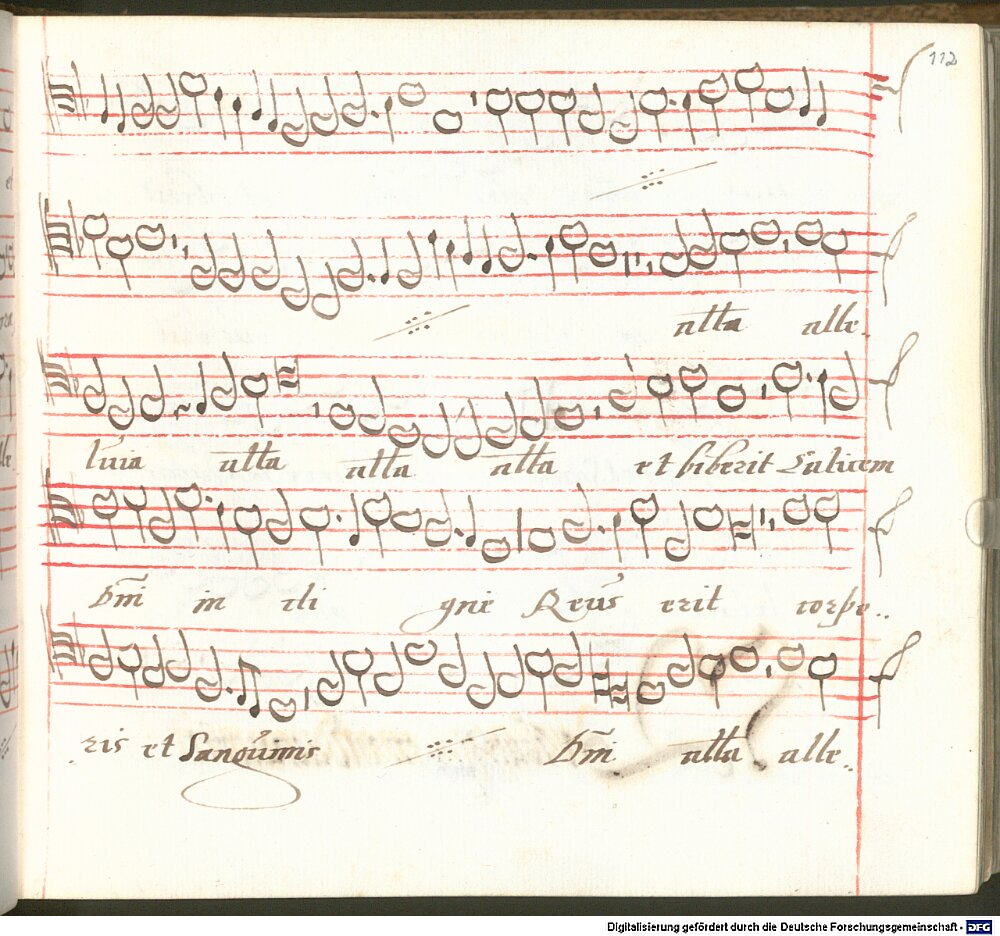 112
alla alle.
luia alla alla alla et biberit Calicem
Dñi in di gne Reus erit corpo..
ris et Sanguinis Dñi alla alle..
Digitalisierung gefördert durch die Deutsche Forschungsgemeinschaft - DFG